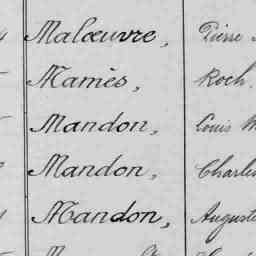 Malœuvre, Pierre
Mamès, Roch,
Mandon, Louis
Mandon, Charles
Mandon, Auguste